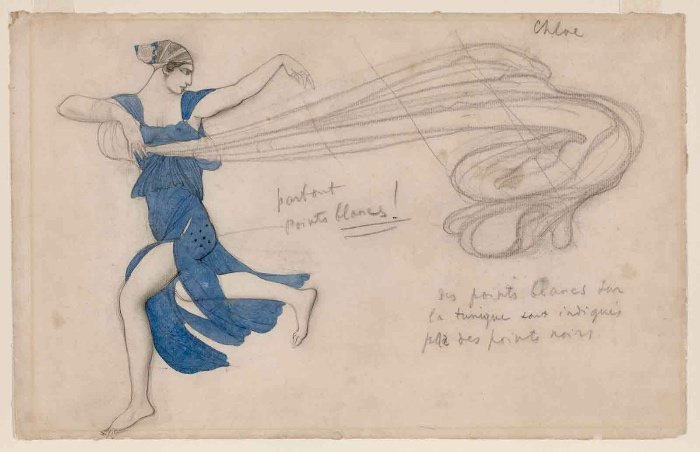 Chloe
partout
points blancs!
des points blancs sur
la tunique sont indiqués
par des points noirs